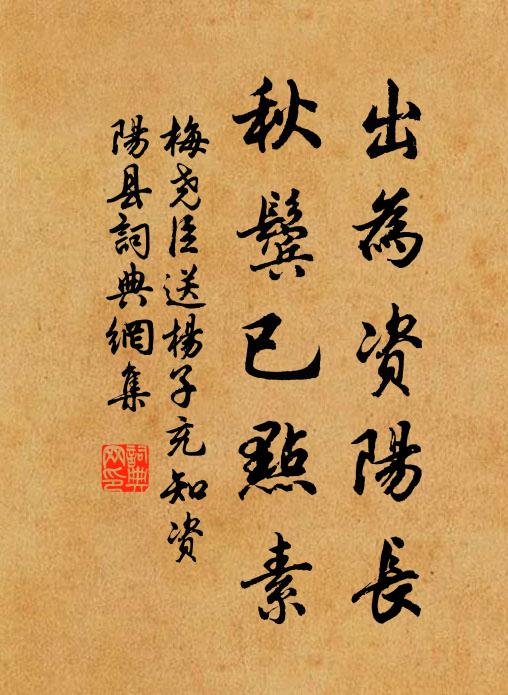 出為资陽長
秋鬓已點素
梅尧臣送楊子充知资
陽县詞典網集
詞典
网印